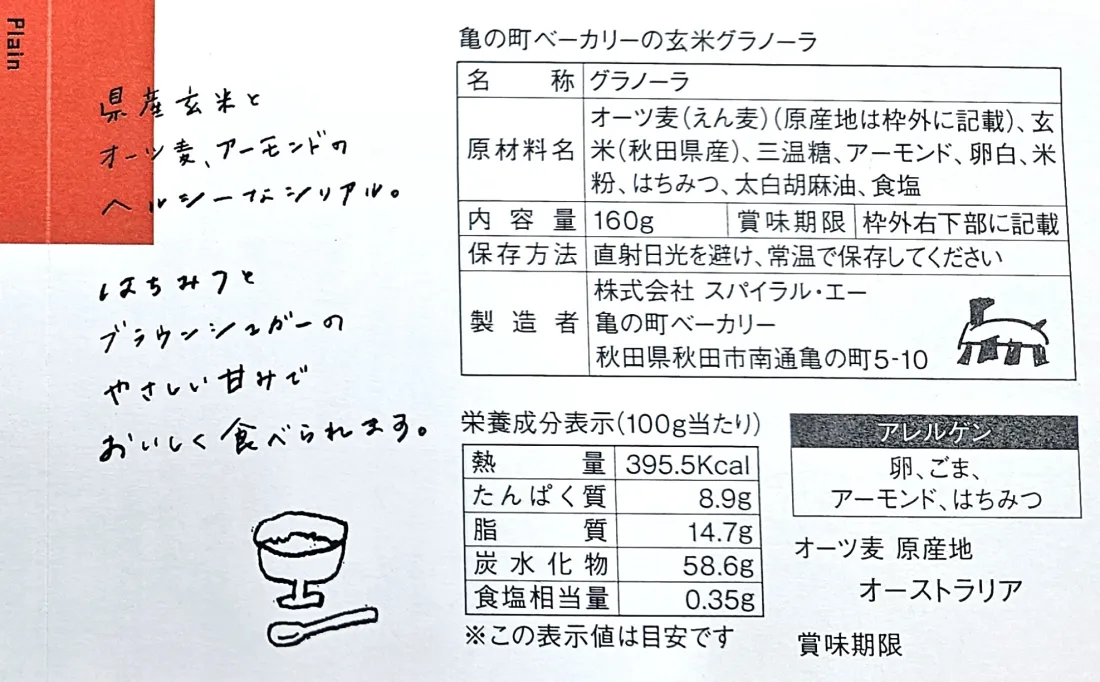 Plain
県産玄米と
オーツ麦、アーモンドの
ヘルシーなシリアル。
はちみつと
ブラウンシュガーの
やさしい甘みで
おいしく食べられます。
亀の町ベーカリーの玄米グラノーラ
名称 グラノーラ
原材料名 オーツ麦(えん麦)(原産地は枠外に記載)、玄
米(秋田県産)、三温糖、アーモンド、卵白、米
粉、はちみつ、太白胡麻油、食塩
内容量 160g 賞味期限 枠外右下部に記載
保存方法 直射日光を避け、常温で保存してください
製造者 株式会社 スパイラル・エー
亀の町ベーカリー
秋田県秋田市南通亀の町5-10
栄養成分表示(100g当たり)
熱量 395.5Kcal
たんぱく質 8.9g
脂質 14.7g
炭水化物 58.6g
食塩相当量 0.35g
※この表示値は目安です
アレルゲン
卵、ごま、
アーモンド、はちみつ
オーツ麦 原産地
オーストラリア
賞味期限